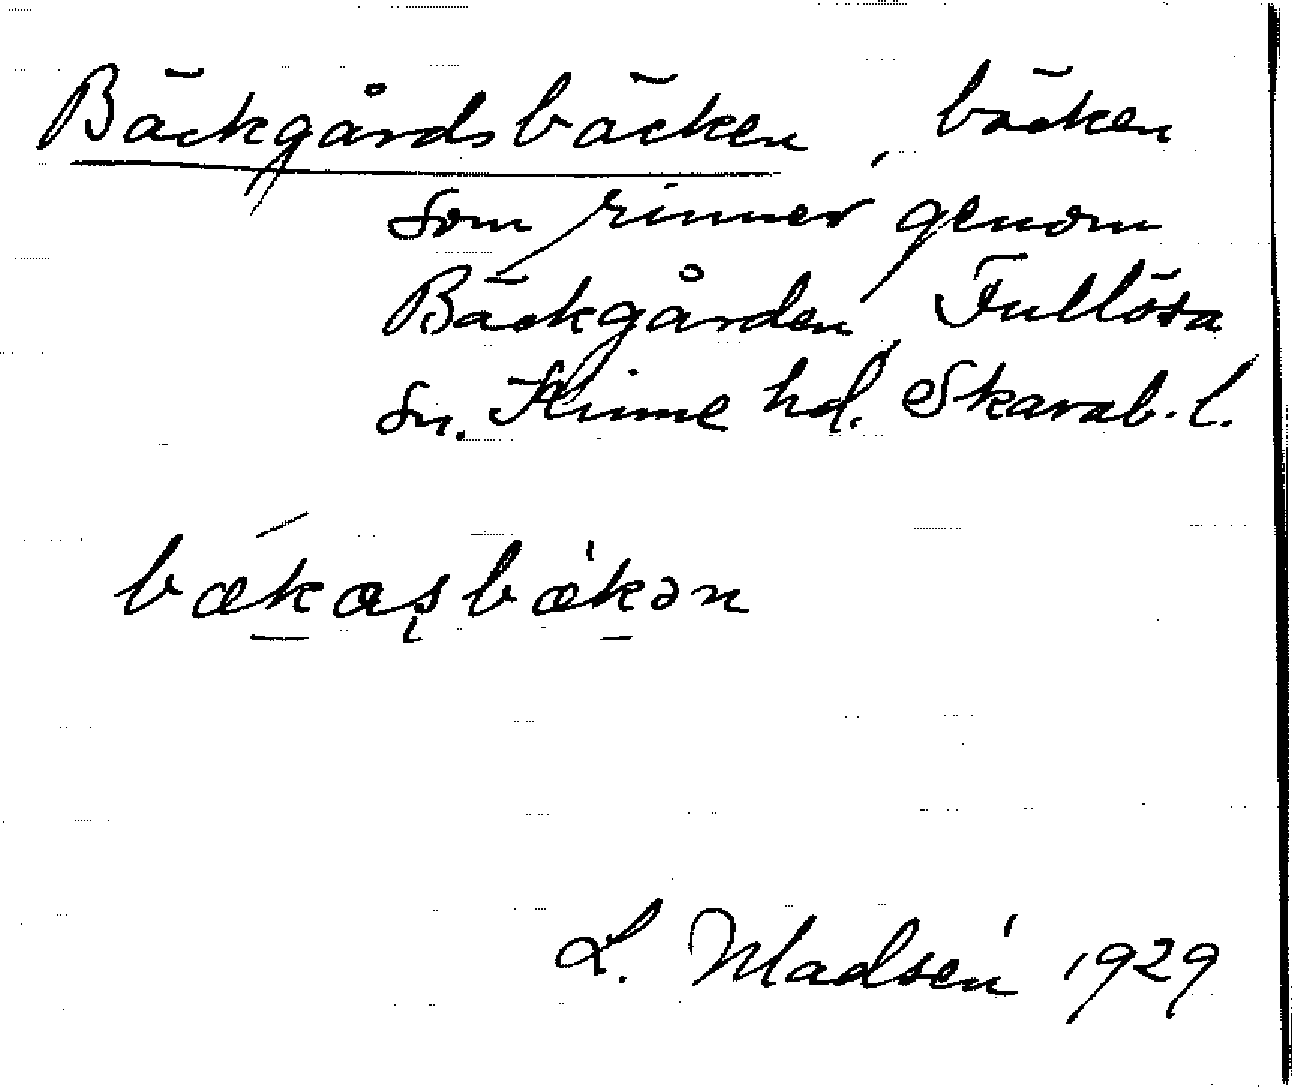 Bäckgårdsbäcken, bäcken
som rinner genom
Bäckgården, Fullösa
sn. Kinne hd. Skarab. l.
bækasbækən
L. Madsén 1929